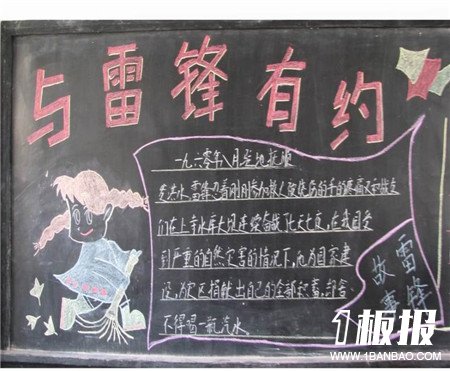 与雷锋有约
一九六零年八月
发洪水,雷锋忍着刚刚参加救人的手的疼痛又和战友
们在上寺水库大坝连续奋战七天七夜,在我国受
到严重的自然灾害的情况下,他为国家建
设,为灾区捐献出自己的全部积蓄,却舍
不得喝一瓶汽水
雷锋
故事
1板报
WWW.1BANBAO.COM